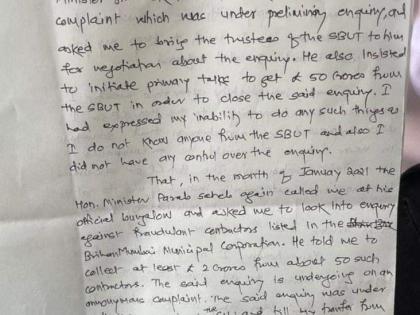 complaint which was under preliminary enquiry, and
asked me to bring the trustees of the SBUT to him
for negotiation about the enquiry. He also Insisted
to initiate primary talks to get ₹ 50 Crores from
the SBUT in order to close the said enquiry. I
had expressed my inability to do any such things as
I do not know anyone from the SBUT and also I
did not have any control over the enquiry.
That, in the month of January 2021 the
Hon. Minister Parab saheb again called me at his
official bungalow and asked me to look Into enquiry
against fraudulent contractors listed in the
BrihanMumbai Municipal Corporation. He told me to
collect at least ₹ 2 Crores from about 50 such
contractors. The said enquiry is undergoing on an
annonymous complaint. The said enquiry was under
the and till my transfer from